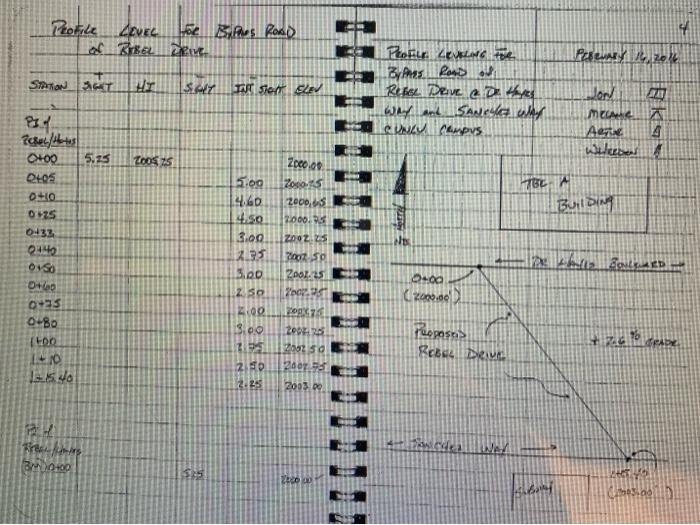 PROFILE LEVEL FOR BYPASS ROAD
OF REBEL DRIVE
STATION +SIGHT HI -SIGHT INT SIGHT ELEV
PI of
Rebel/Hayes
0+00 5.25 2005.25 2000.00
0+05 5.00 2000.25
0+10 4.60 2000.65
0+25 4.50 2000.75
0+33 3.00 2002.25
0+40 2.75 2002.50
0+50 3.00 2002.25
0+60 2.50 2002.75
0+75 2.00 2003.25
0+80 3.00 2002.25
1+00 2.75 2002.50
1+10 2.50 2002.75
1+15.40 2.25 2003.00
PI of
BM 0+00 5.25 2000.00
4
PROFILE LEVELING FOR
BYPASS ROAD of
REBEL DRIVE @ DE
WAY and SANCHEZ WAY
CAMPUS
FEBRUARY 16, 2016
JON
MELANIE
NORTH
NTS
TBE-A
BUILDING
← DE BOULEVARD →
0+00
(2000.00')
PROPOSED
REBEL DRIVE
+ 2.6 % GRADE
← SANCHEZ WAY →
1+15.40
(2003.00')
SUBWAY